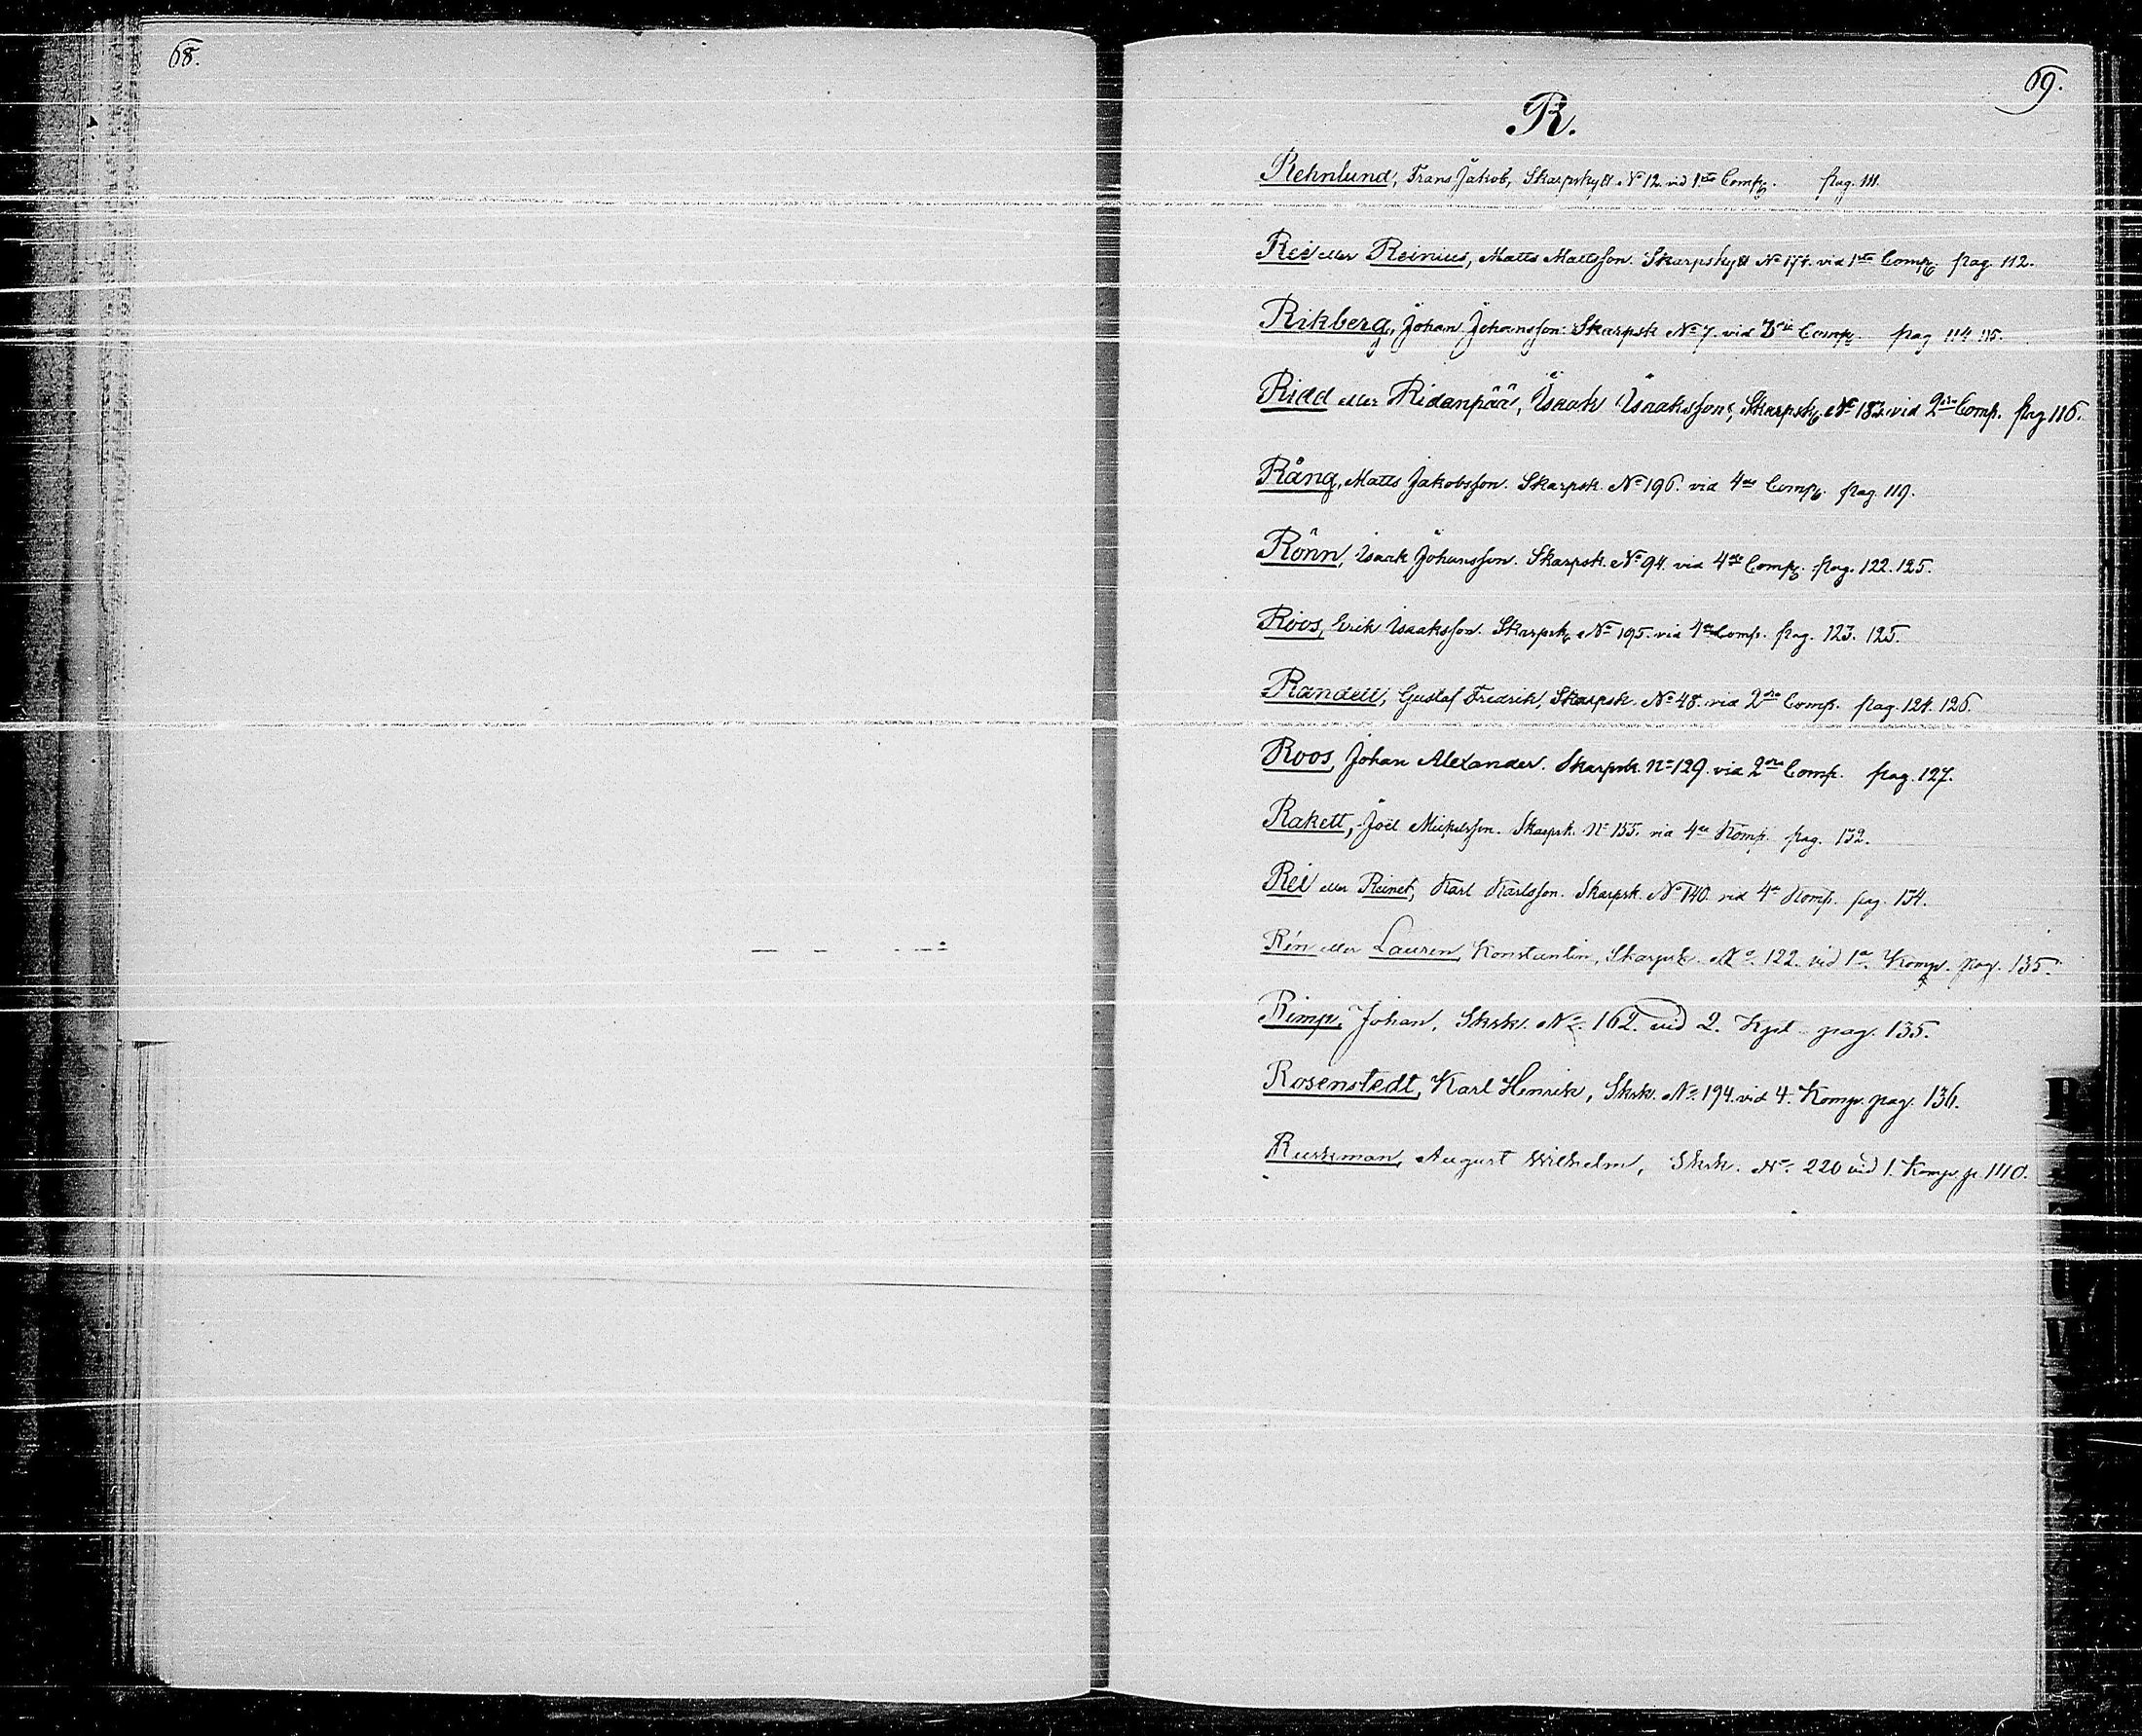 68.
69.
R.
Rehnlund, Frans Jakob, Skarpskytt No 12. vid 1sta Comp. pag. 111.
Rei eller Reinius, Matts Mattsson. Skarpskytt No 174. vid 1sta Comp. pag. 112.
Rikberg, Johan Johansson. Skarpsk No 7. vid 3die Comp. pag 114. 115.
Ridd eller Ridanpää, Isaak Isaaksson, Skarpsk. No 183. vid 2dra Comp. pag 116.
Rång, Matts Jakobsson. Skarpsk. No 196. vid 4de Comp. pag. 119.
Rönn, Isaak Johansson. Skarpsk. No 94. vid 4de Comp. pag. 122. 125.
Roos, Erik Isaaksson. Skarpsk. No 195. vid 4de Comp. pag. 123. 125.
Randell, Gustaf Fredrik, Skarpsk. No 48. vid 2dra Comp. pag. 124. 126.
Roos, Johan Alexander. Skarpsk. No 129. vid 2dra Comp. pag. 127.
Rakett, Joel Mickelsson. Skarpsk. No 155. vid 4de Komp. pag. 132.
Rei eller Reinet, Karl Karlsson. Skarpsk. No 140. vid 4de Komp. pag. 134.
Rén eller Lauren, Konstantin, Skarpsk. No. 122. vid 1a. Komp. pag. 135.
Rimp, Johan, Sksk. No. 162. vid 2. Kpt pag. 135.
Rosenstedt, Karl Henrik, Sksk. No. 194. vid 4. Komp. pag. 136.
Ruskman, August Wilhelm, Sksk. No. 220 vid 1. Komp. p. 140.